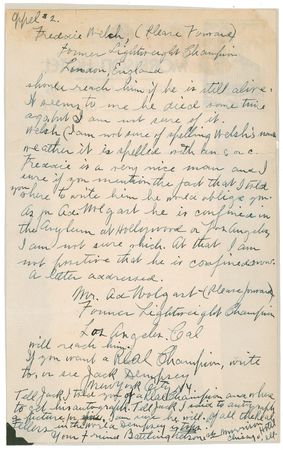 Page #2.
Freddie Welsh, (Please Forward)
Former Lightweight Champion
London, England
should reach him if he is still alive.
It seems to me he died some time
ago but I am not sure of it.
Welsh (I am not sure of spelling Welsh's name
weather it is spelled with an s or c.
Freddie is a very nice man and I
sure if you mention the fact that I told
you where to write him he would oblige you.
As for Ad. Wolgast he is confined in
the asylum at Hollywood or Los Angeles,
I am not sure which. At that I am
not positive that he is confined now.
A letter addressed.
Mr. Ad Wolgast - (Please forward)
Former Lightweight Champion
Los Angeles, Cal
will reach him.
If you want a Real Champion, write
to, or see Jack Dempsey
New York City N.Y.
Tell Jack I told you of a Real Champion and where
to get his autograph. Tell Jack I said to autograph
a picture for you. I am sure he will. Of all the real
Fellers in the world Dempsey is tops.
Your Friend Battling Nelson Morrison Hotel
Chicago, Ill.